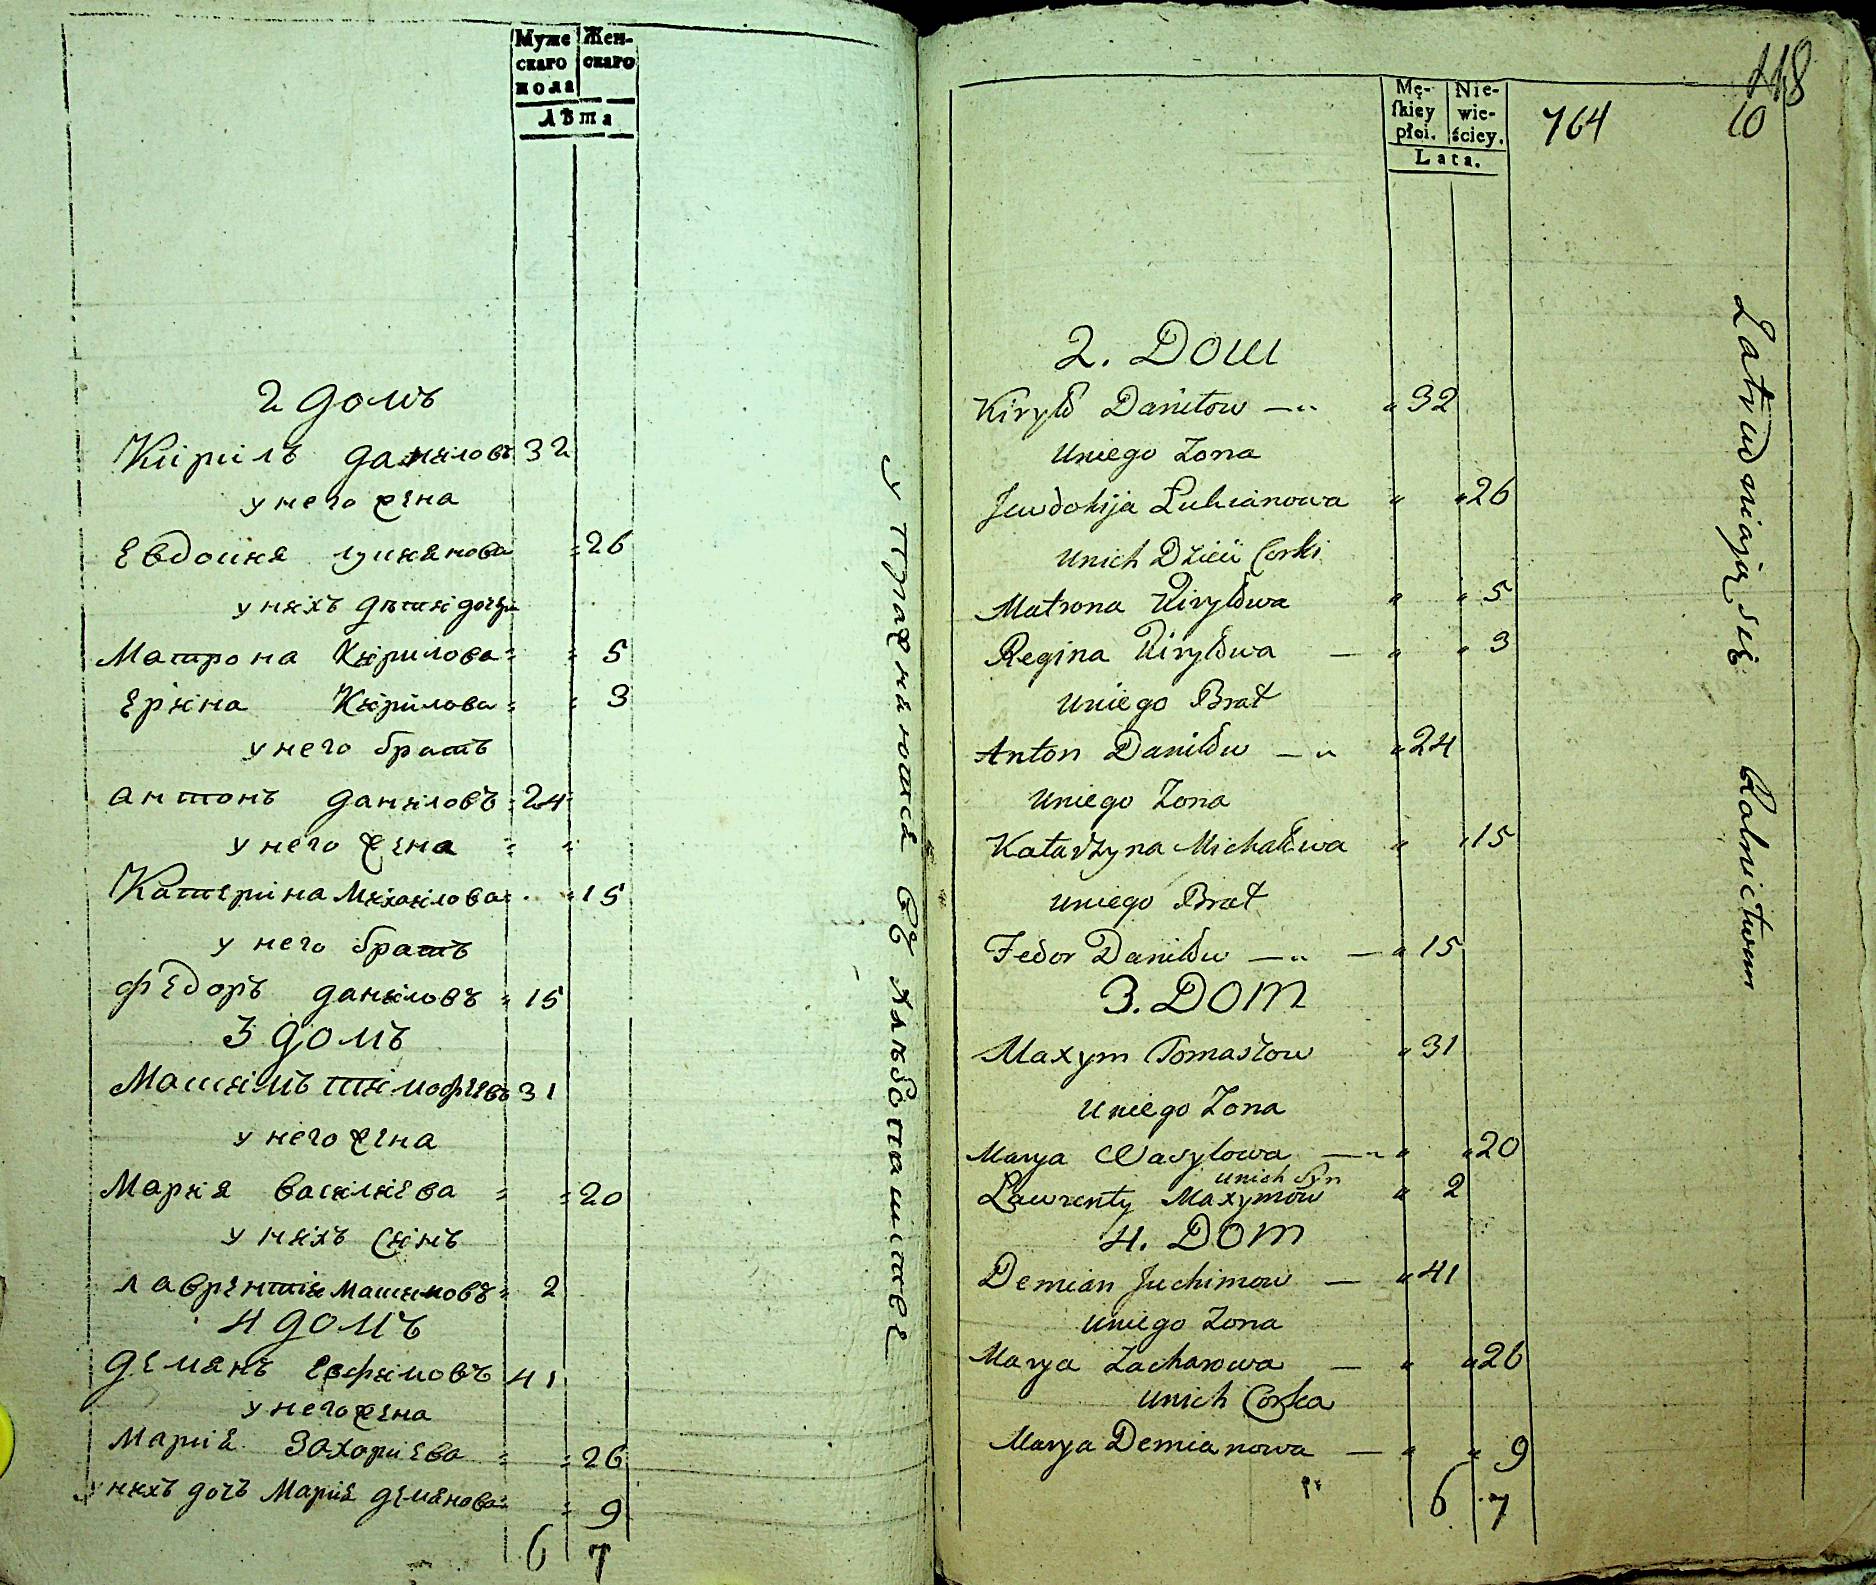 Муже Жен-
скаго скаго
пола
Лѣта
2 домъ
Кирилъ даниловъ 32
у него жена
Евдокия лукянова 26
у нихъ дѣти дочери
Матрона Кирилова 5
Ерина Кирилова 3
у него братъ
антонъ даниловъ 24
у него жена
Катерина Михаилова 15
у него братъ
федоръ даниловъ 15
3 домъ
Мацимъ тимофеевъ 31
у него жена
Мария василиева 20
у нихъ синъ
лаврентии Мацимовъ 2
4 домъ
демянъ Евфимовъ 41
у него жена
Мария Захариева 26
у нихъ дочъ Мария демянова 9
6 7
упражняются въ хлѣбопаштве
Mę- Nie-
ſkiey wie-
płci. ściey.
Lata.
764
118
10
2. Dom
Kiryło Daniłow 32
uniego Zona
Jewdokija Łukianowa 26
unich Dzieci Corki
Matrona Kiryłowa 5
Regina Kiryłowa 3
uniego Brat
Anton Daniłow 24
uniego Zona
Katarzyna Michałowa 15
uniego Brat
Fedor Daniłow 15
3. Dom
Maxym Tomaszow 31
uniego Zona
Marya Wasylowa 20
unich Syn
Lawrenty Maxymow 2
4. Dom
Demian Juchimow 41
uniego Zona
Marya Zacharowa 26
unich Corka
Marya Demianowa 9
6 7
Zatrudniaią się Rolnictwem